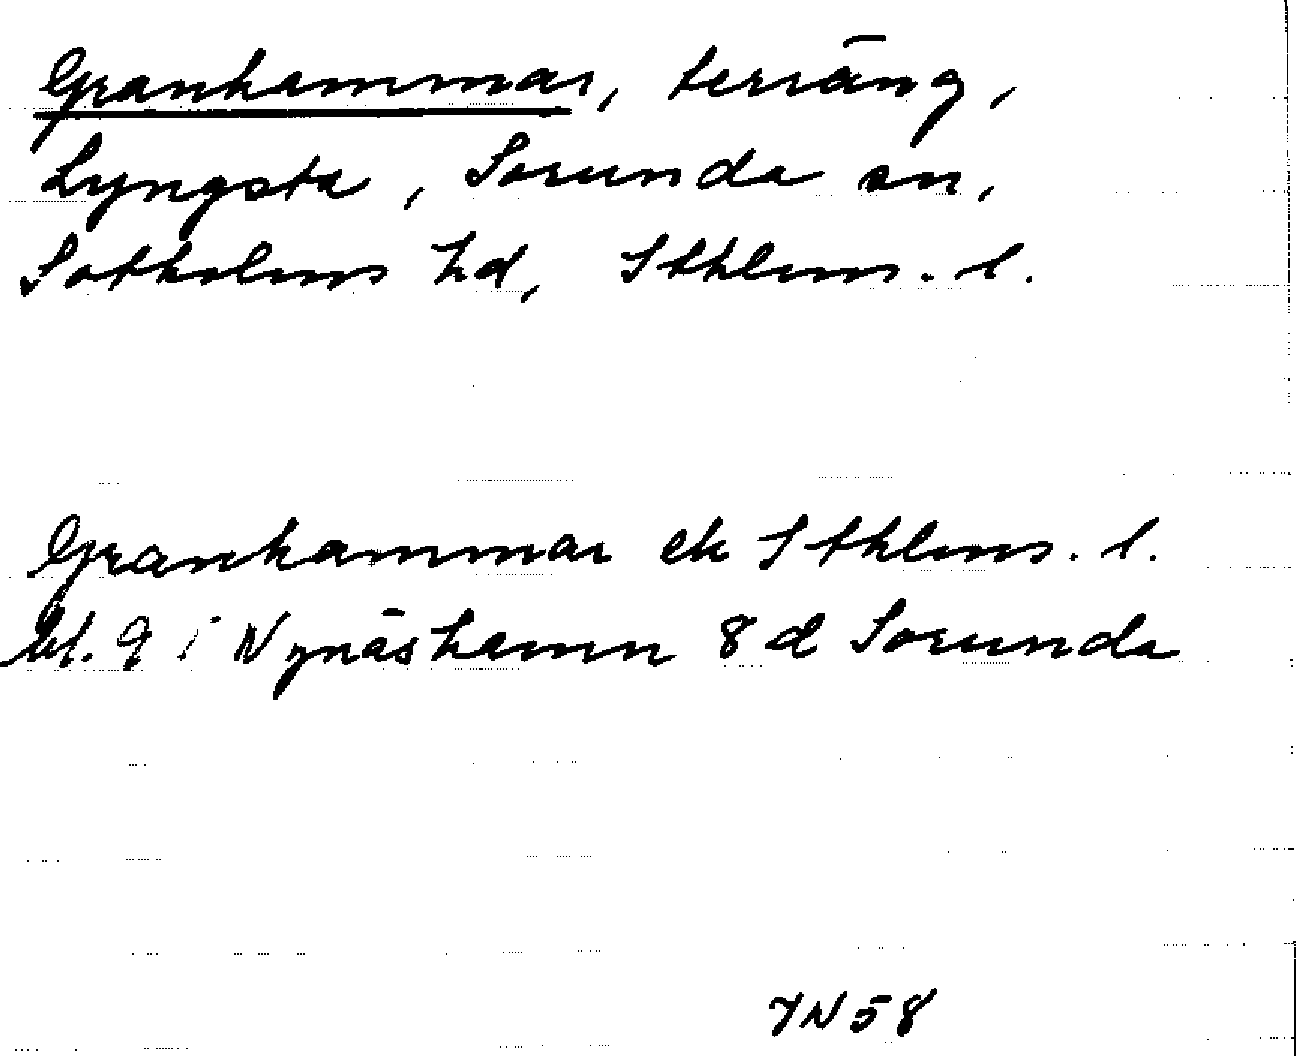 Granhammar, terräng,
Lyngsta, Sorunda sn,
Sotholms hd, Sthlms. l.
Granhammar ek Sthlms. l.
bl. 9 i Nynäshamn 8 d Sorunda
7N58